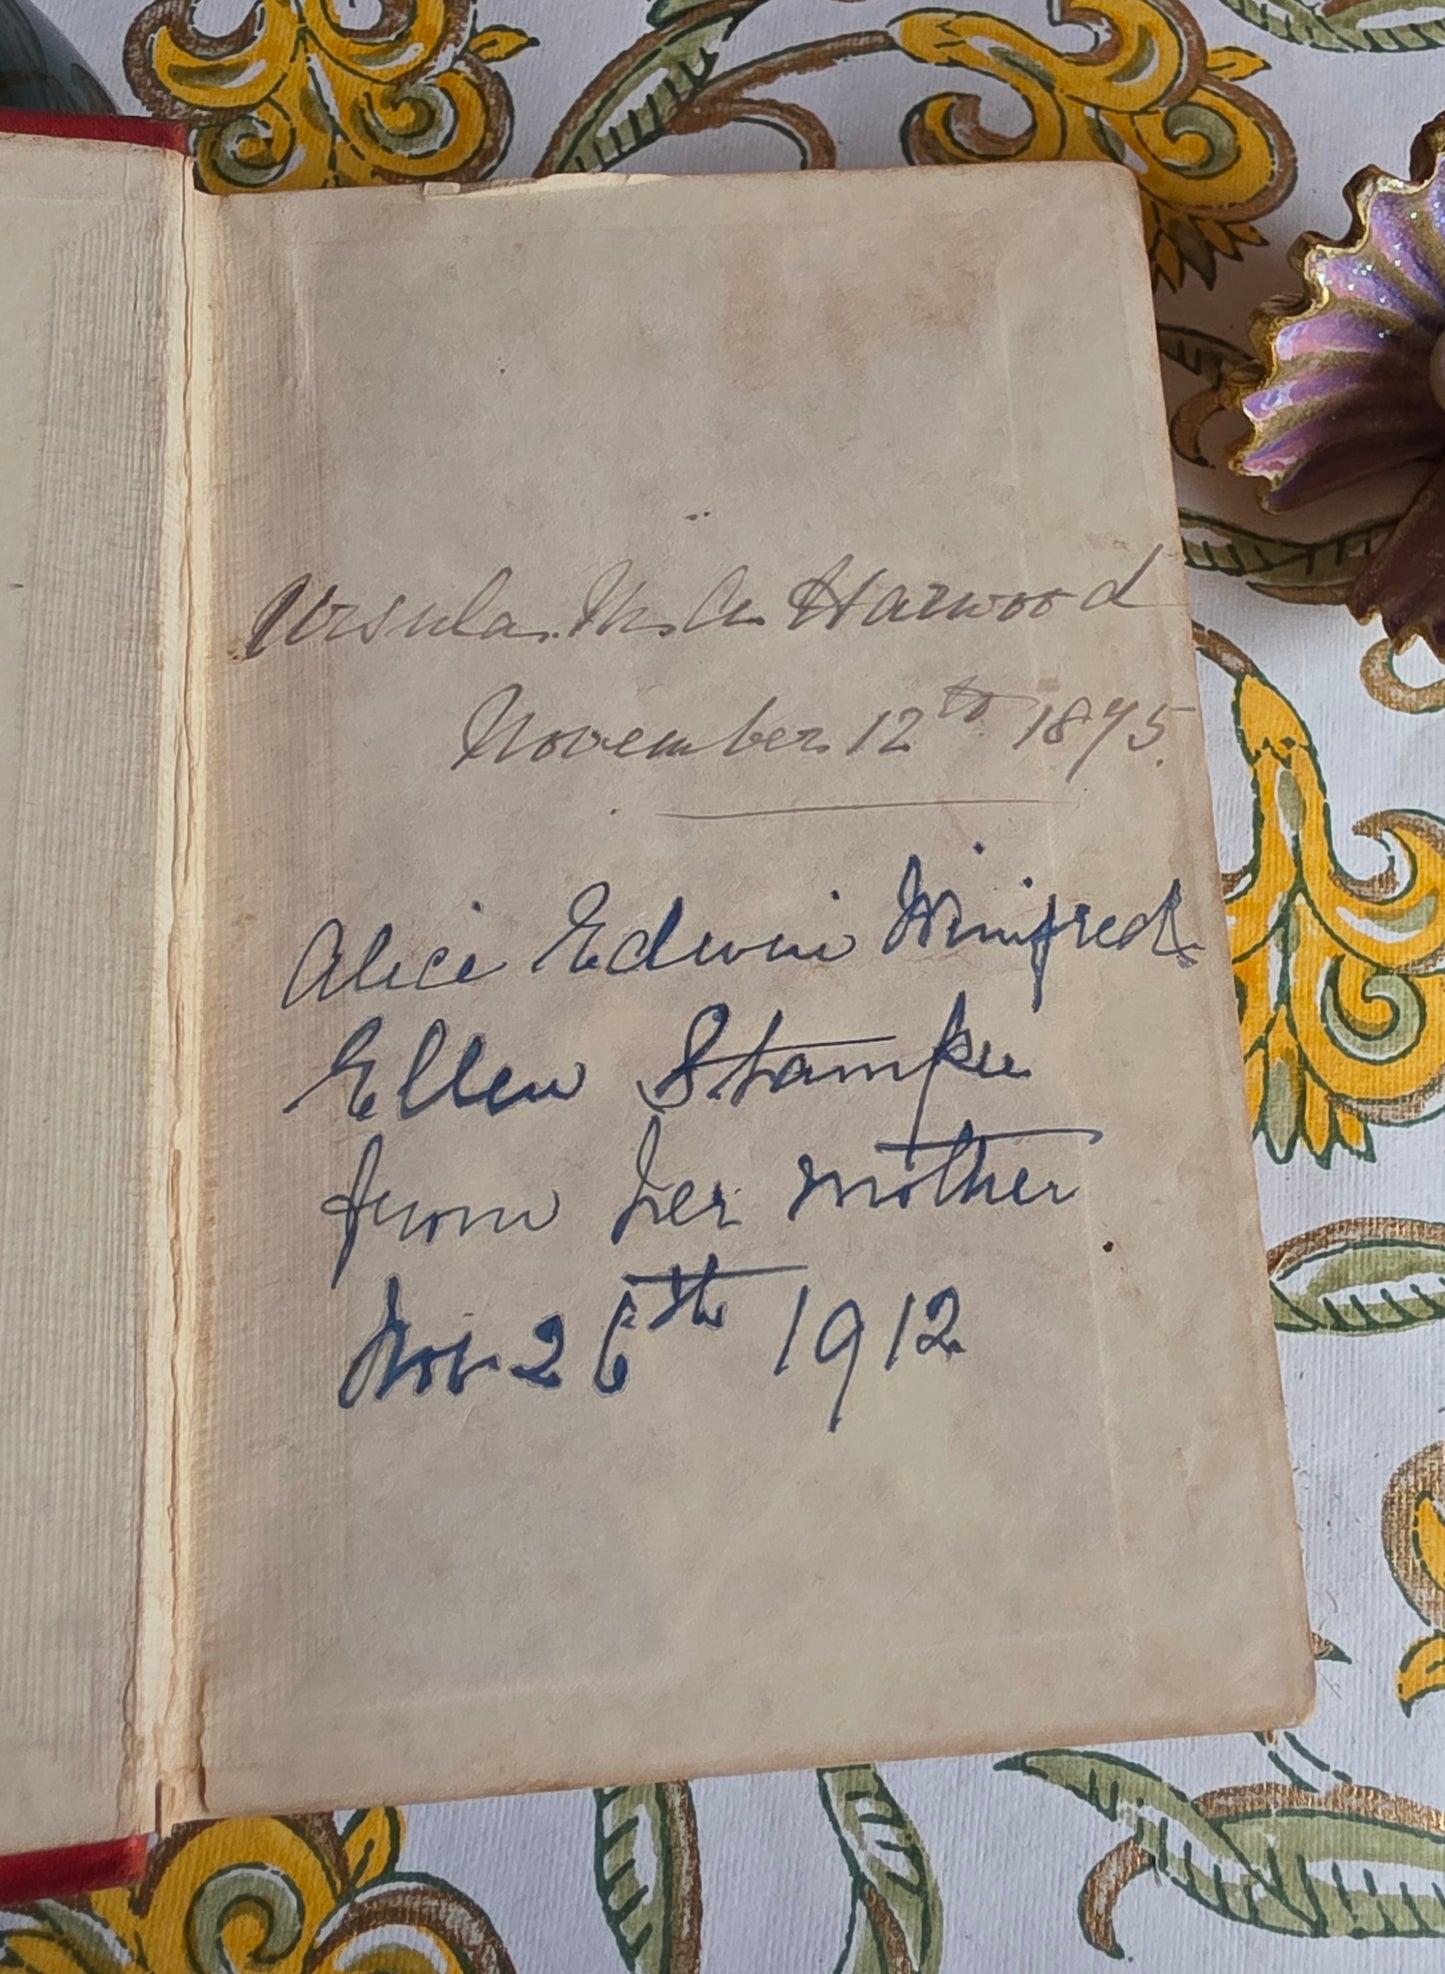 Ursula. M. A. Harwood
November 12th 1895.
Alice Edwin Winifred
Ellen
from her mother
Nov 26th 1912